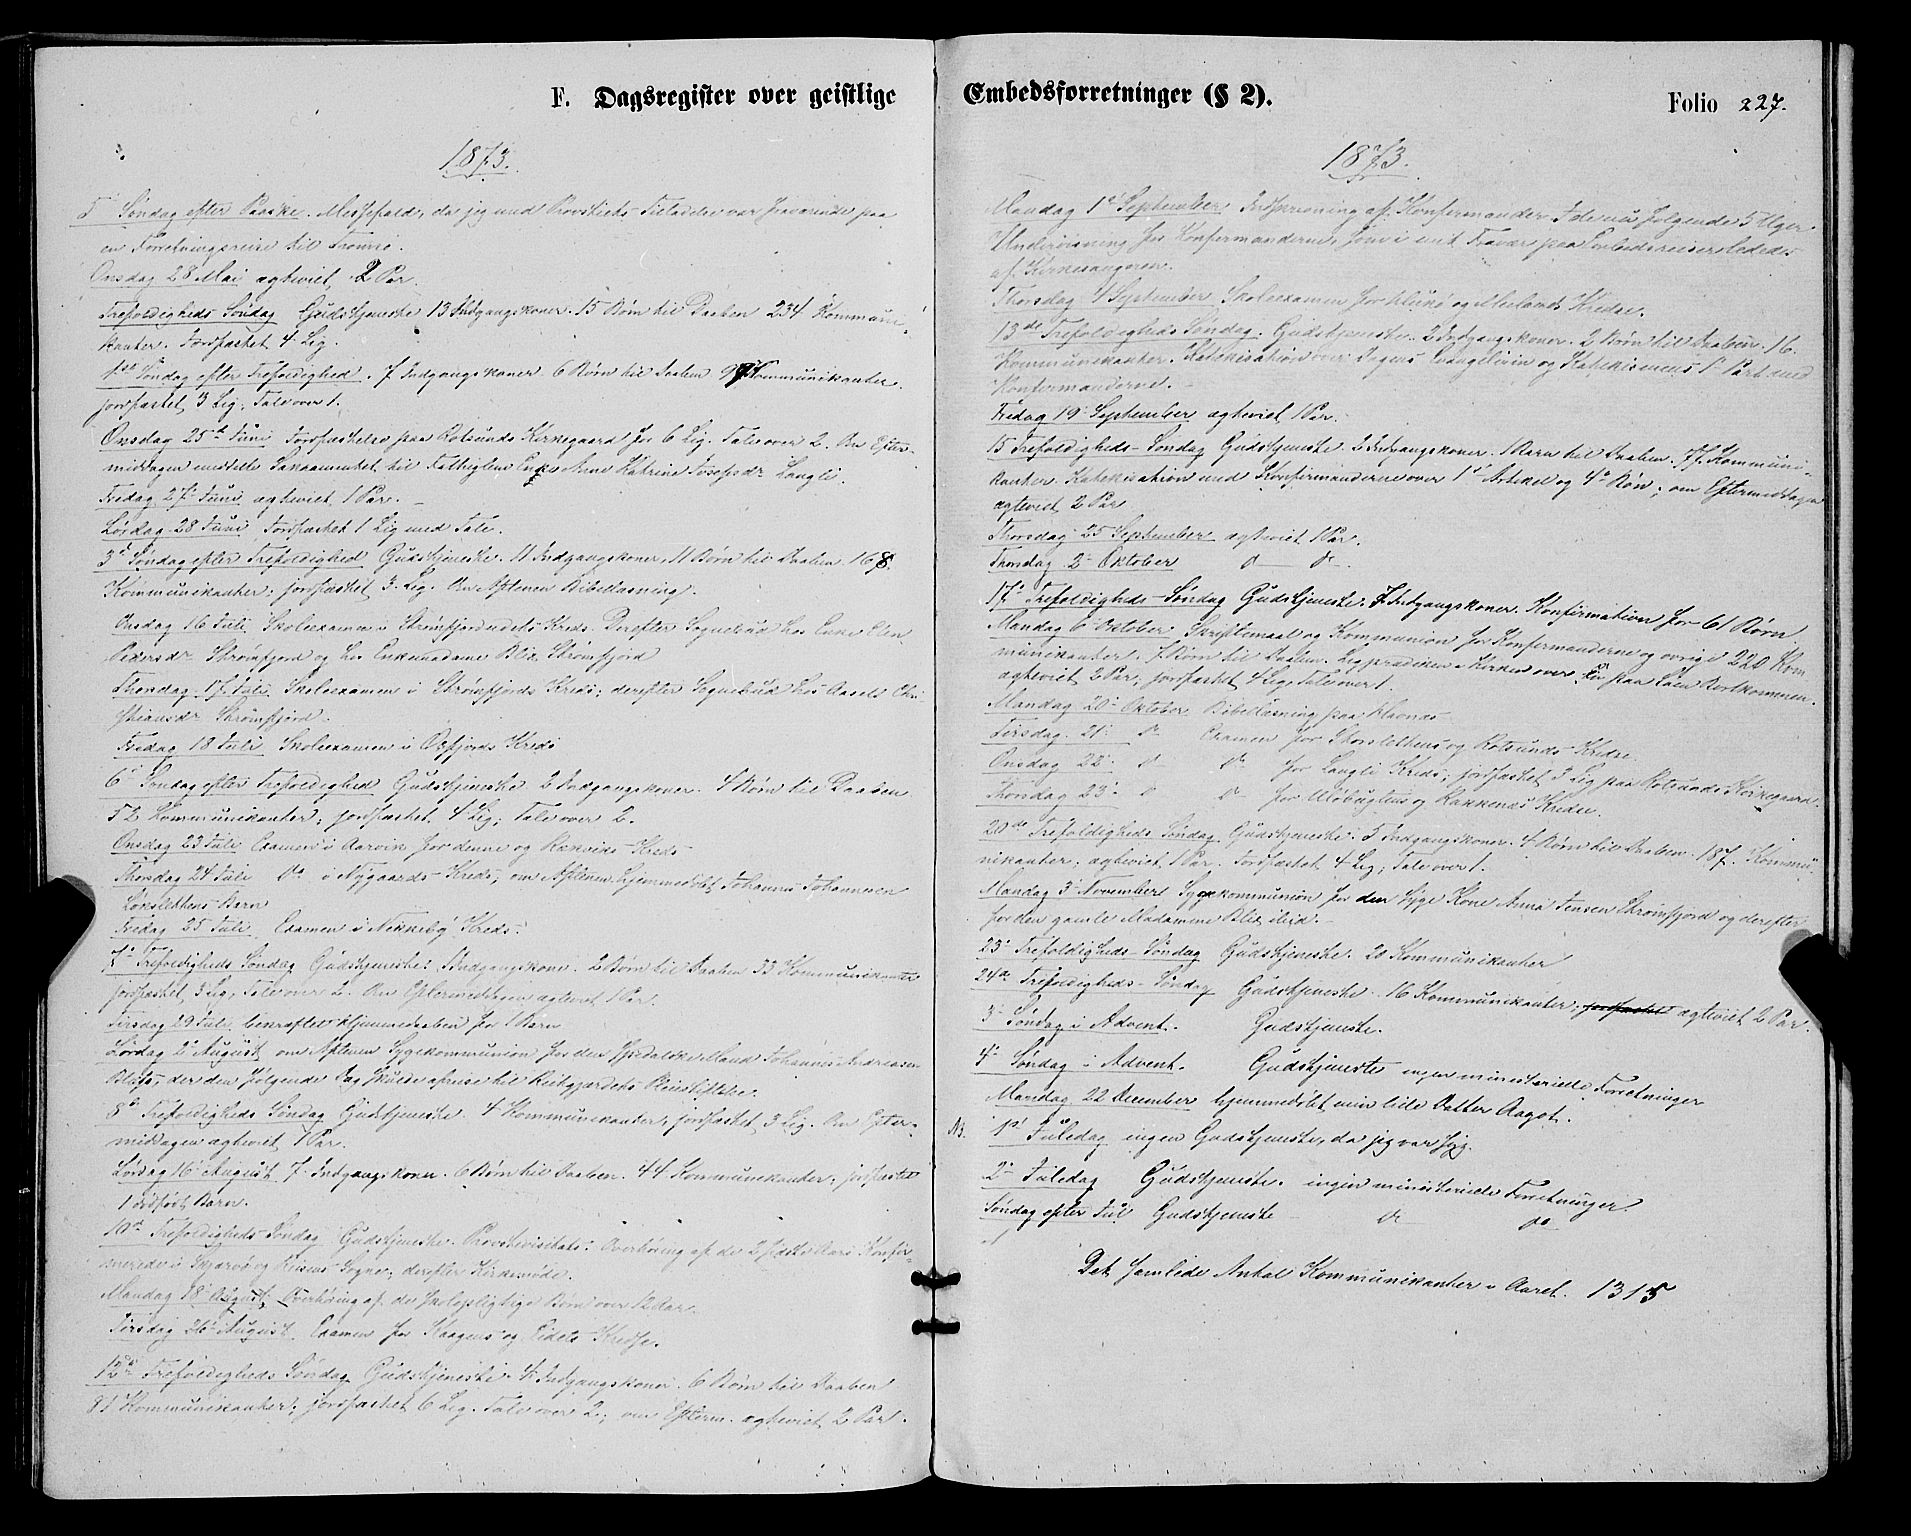 F. Dagsregister over geistlige
1873.
5 Søndag efter Paaske. Messefald, da jeg med Provstiets Tilladelse var fraværende paa
en Forretningsreise til Tromsø.
Onsdag 28 Mai agteviet 2 Par.
Trefoldigheds Søndag Gudstjeneste 13 Indgangskoner. 15 Børn til Daaben 234 Kommuni-
kanter. Jordfæstet 4 Lig.
1ste Søndag efter Trefoldighed. 7 Indgangskoner 6 Børn til Daaben Kommunikanter.
jordfæstet 3 Lig, Tale over 1.
Onsdag 25de Juni Jordfæstelse paa Rotsunds Kirkegaard for 6 Lig. Tale over 2. Om Efter-
middagen meddelte Sakramentet til Fathiglem Enke Ane Katrine Josefsdr Langli.
Fredag 27 Juni agteviet 1 Par.
Lørdag 28 Juni Jordfæstet 1 Lig med Tale.
3d Søndag efter Trefoldighed Gudstjeneste. 11 Indgangskoner, 11 Børn til Daaben 168
Kommunikanter; jordfæstet 3 Lig. Om Aftenen Bibellæsning.
Onsdag 16 Juli Skoleexamen i Strømfjordeidets Kreds. Derefter Sognebud hos Enke Elen
Pedersdr Strømfjord og hos Enkemadame Blix Strømfjord
Thorsdag 17 Juli Skoleexamen i Strømfjords Kreds; derefter Sognebud hos Aasel Chri-
stiansdr Strømfjord.
Fredag 18 Juli Skoleexamen i Oxfjords Kreds
6 Søndag efter Trefoldighed Gudstjeneste 2 Indgangskoner. 4 Børn til Daaben
52 Kommunikanter; jordfæstet 4 Lig; Tale over 2.
Onsdag 23 Juli Examen i Aarvik for denne og Rækviks Kreds
Thorsdag 24 Juli Do i Nygaards Kreds, om Aftenen hjemmedøbt Johannes Johannesen
Barn
Fredag 25 Juli Examen i Kreds.
7 Trefoldigheds Søndag Gudstjeneste: 1 Indgangskone. 2 Børn til Daaben 33 Kommunikanter
jordfæstet 3 Lig, Tale over 2. Om Eftermiddagen agteviet 1 Par.
Tirsdag 29 Juli bekræftet Hjemmedaaben for 1 Barn
Lørdag 2 August om Aftenen Sygekommunion for den spedalske Mand Johannes Andreasen
der den følgende Dag skulde afreise til Reitgjærdets Pleiestiftelse.
8 Trefoldigheds Søndag Gudstjeneste. 4 Kommunikanter, jordfæstet 3 Lig. Om Efter-
middagen agteviet 1 Par.
Lørdag 16 August 7 Indgangskoner. 6 Børn til Daaben. 44 Kommunikanter, jordfæstet
1 dødfødt Barn.
10de Trefoldigheds Søndag Gudstjeneste. Provstevisitats: Overhøring af de 2 sidste Aars Konfir-
merede i Skjervø og Reisens Sogne; derefter Kirkemøde.
Mandag 18 August, Overhøring af de skolepligtige Børn over 12 Aar.
Tirsdag 26 August. Examen for Kaagens og Eidets Kredse.
12te Trefoldigheds Søndag Gudstjeneste 4 Indgangskoner. 6 Børn til Daaben
81 Kommunikanter; jordfæstet 6 Lig. Tale over 2; om Efterm. agteviet 2 Par.
Embedsforretninger (§ 2).
Folio 227.
1873.
Mandag 1st September Indskrivning af Konfirmander. I de nu følgende 5 Uger
Underviisning for Konfirmanderne, som i mit Fravær paa Embedsreiser lededes
af Kirkesangeren.
Thorsdag 4 September Skoleexamen for og Kredse.
13de Trefoldigheds Søndag. Gudstjeneste. 2 Indgangskoner. 2 Børn til Daaben. 16
Kommunikanter. Katekisation over Dagens Evangelium og Katekismens 1ste Part med
Konfirmanderne.
Fredag 19 September agteviet 1 Par.
15 Trefoldigheds-Søndag Gudstjeneste. 2 Indgangskoner. 1 Barn til Daaben. 77 Kommuni-
kanter. Katekisation med Konfirmanderne over 1ste Artikel og 4de Bøn; om Eftermiddagen
agteviet 2 Par
Thorsdag 25 September agteviet 1 Par.
Thorsdag 2 Oktober do do.
17 Trefoldigheds-Søndag Gudstjeneste. 7 Indgangskoner. Konfirmation for 61 Børn.
Mandag 6 Oktober Skriftemaal og Kommunion for Konfirmanderne og øvrige 220 Kom-
munikanter. 7 Børn til Daaben. Ligprædiken i Kirken over En paa Søen Bortkommen.
agteviet 2 Par, jordfæstet 4 Lig, Tale over 1.
Mandag 20 Oktober Bibellæsning paa Havnnæs
Tirsdag 21 do Examen for og Rotsunds Kredse
Onsdag 22 do do for Langli Kreds; jordfæstet 3 Lig paa Rotsunds Kirkegaard.
Thorsdag 23 do do for Uløbugtens og Kredse.
20de Trefoldigheds Søndag Gudstjeneste: 5 Indgangskoner. 4 Børn til Daaben. 187 Kommu-
nikanter. agteviet 1 Par. Jordfæstet 4 Lig; Tale over 1.
Mandag 3 November Sygekommunion for den syge Kone Anna Jensen Strømfjord og derefter
for den gamle Madamme Blix ibid.
23 Trefoldigheds-Søndag Gudstjeneste. 20 Kommunikanter
24de Trefoldigheds-Søndag Gudstjeneste. 16 Kommunikanter; jordfæstet agteviet 2 Par.
3 Søndag i Advent. Gudstjeneste.
4 Søndag i Advent. Gudstjeneste ingen ministerielle Forretninger
Mandag 22 December hjemmedøbt min lille Datter Aagot.
NB. 1st Juledag ingen Gudstjeneste, da jeg var syg.
2 Juledag Gudstjeneste. ingen ministerielle Forretninger
Søndag efter Jul Gudstjeneste do do
Det samlede Antal Kommunikanter i Aaret. 1315